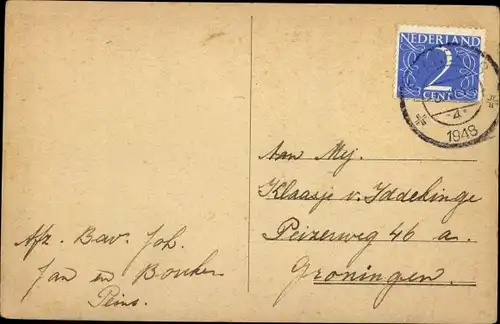 NEDERLAND
2
CENT
1948
Aan Mej.
Klaasje v. Iddekinge
Peizerweg 46 a.
Groningen.
Afz. Bav. Joh.
Jan en
Prins.